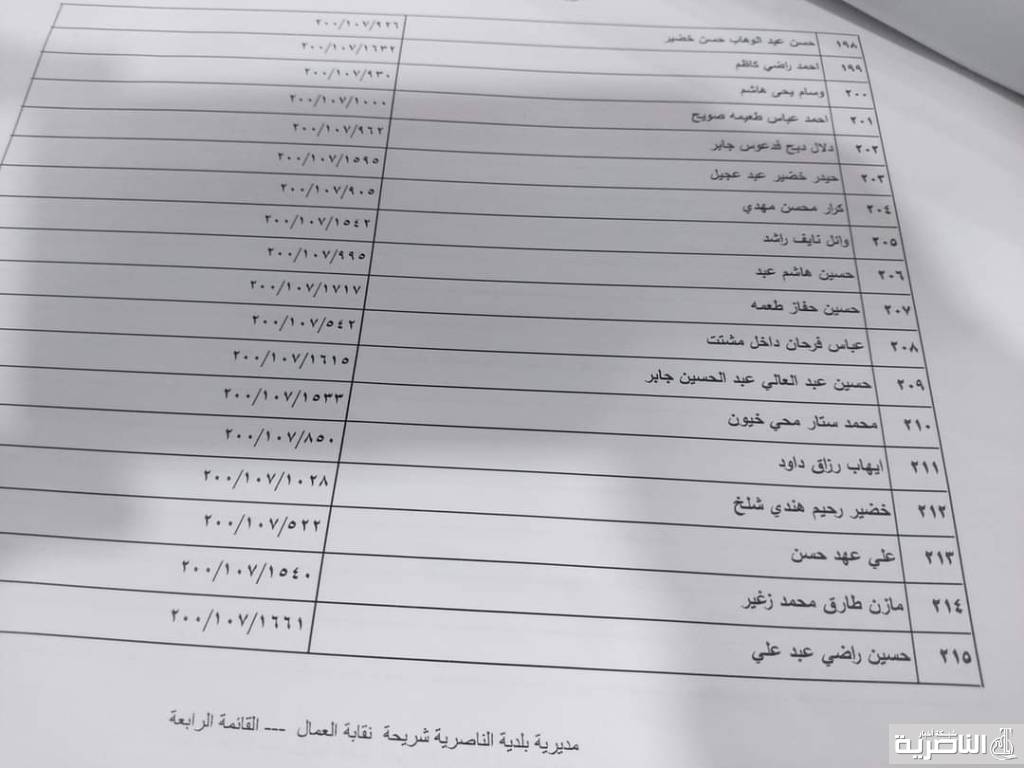 ١٩٨ حسن عبد الوهاب حسن خضير ٢٠٠/١٠٧/٩٢٦
١٩٩ احمد راضي كاظم ٢٠٠/١٠٧/١٦٣٢
٢٠٠ وسام يحى هاشم ٢٠٠/١٠٧/٩٣٠
٢٠١ احمد عباس طعيمه صويح ٢٠٠/١٠٧/١٠٠٠
٢٠٢ دلال ديح فدعوس جابر ٢٠٠/١٠٧/٩٦٢
٢٠٣ حيدر خضير عبد عجيل ٢٠٠/١٠٧/١٥٩٥
٢٠٤ كرار محسن مهدي ٢٠٠/١٠٧/٩٠٥
٢٠٥ وائل نايف راشد ٢٠٠/١٠٧/١٥٤٢
٢٠٦ حسين هاشم عبد ٢٠٠/١٠٧/٩٩٥
٢٠٧ حسين حفاز طعمه ٢٠٠/١٠٧/١٧١٧
٢٠٨ عباس فرحان داخل مشتت ٢٠٠/١٠٧/٥٤٢
٢٠٩ حسين عبد العالي عبد الحسين جابر ٢٠٠/١٠٧/١٦١٥
٢١٠ محمد ستار محي خيون ٢٠٠/١٠٧/١٥٣٣
٢١١ ايهاب رزاق داود ٢٠٠/١٠٧/٨٥٠
٢١٢ خضير رحيم هندي شلخ ٢٠٠/١٠٧/١٠٢٨
٢١٣ علي عهد حسن ٢٠٠/١٠٧/٥٢٢
٢١٤ مازن طارق محمد زغير ٢٠٠/١٠٧/١٥٤٠
٢١٥ حسين راضي عبد علي ٢٠٠/١٠٧/١٦٦١
مديرية بلدية الناصرية شريحة نقابة العمال --- القائمة الرابعة
شبكة اخبار
الناصرية